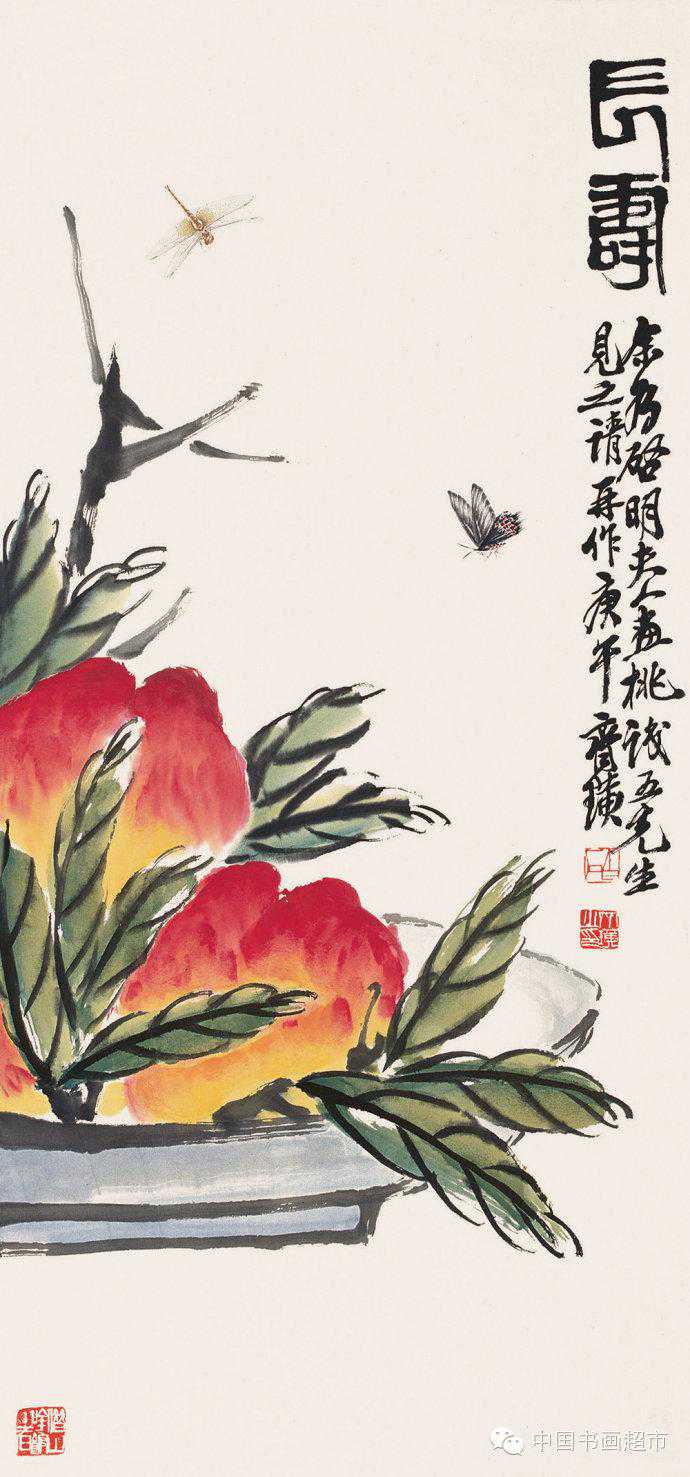 長壽
余为啓明夫人畫桃誠五先生
見之請再作庚午齊璜
中国书画超市